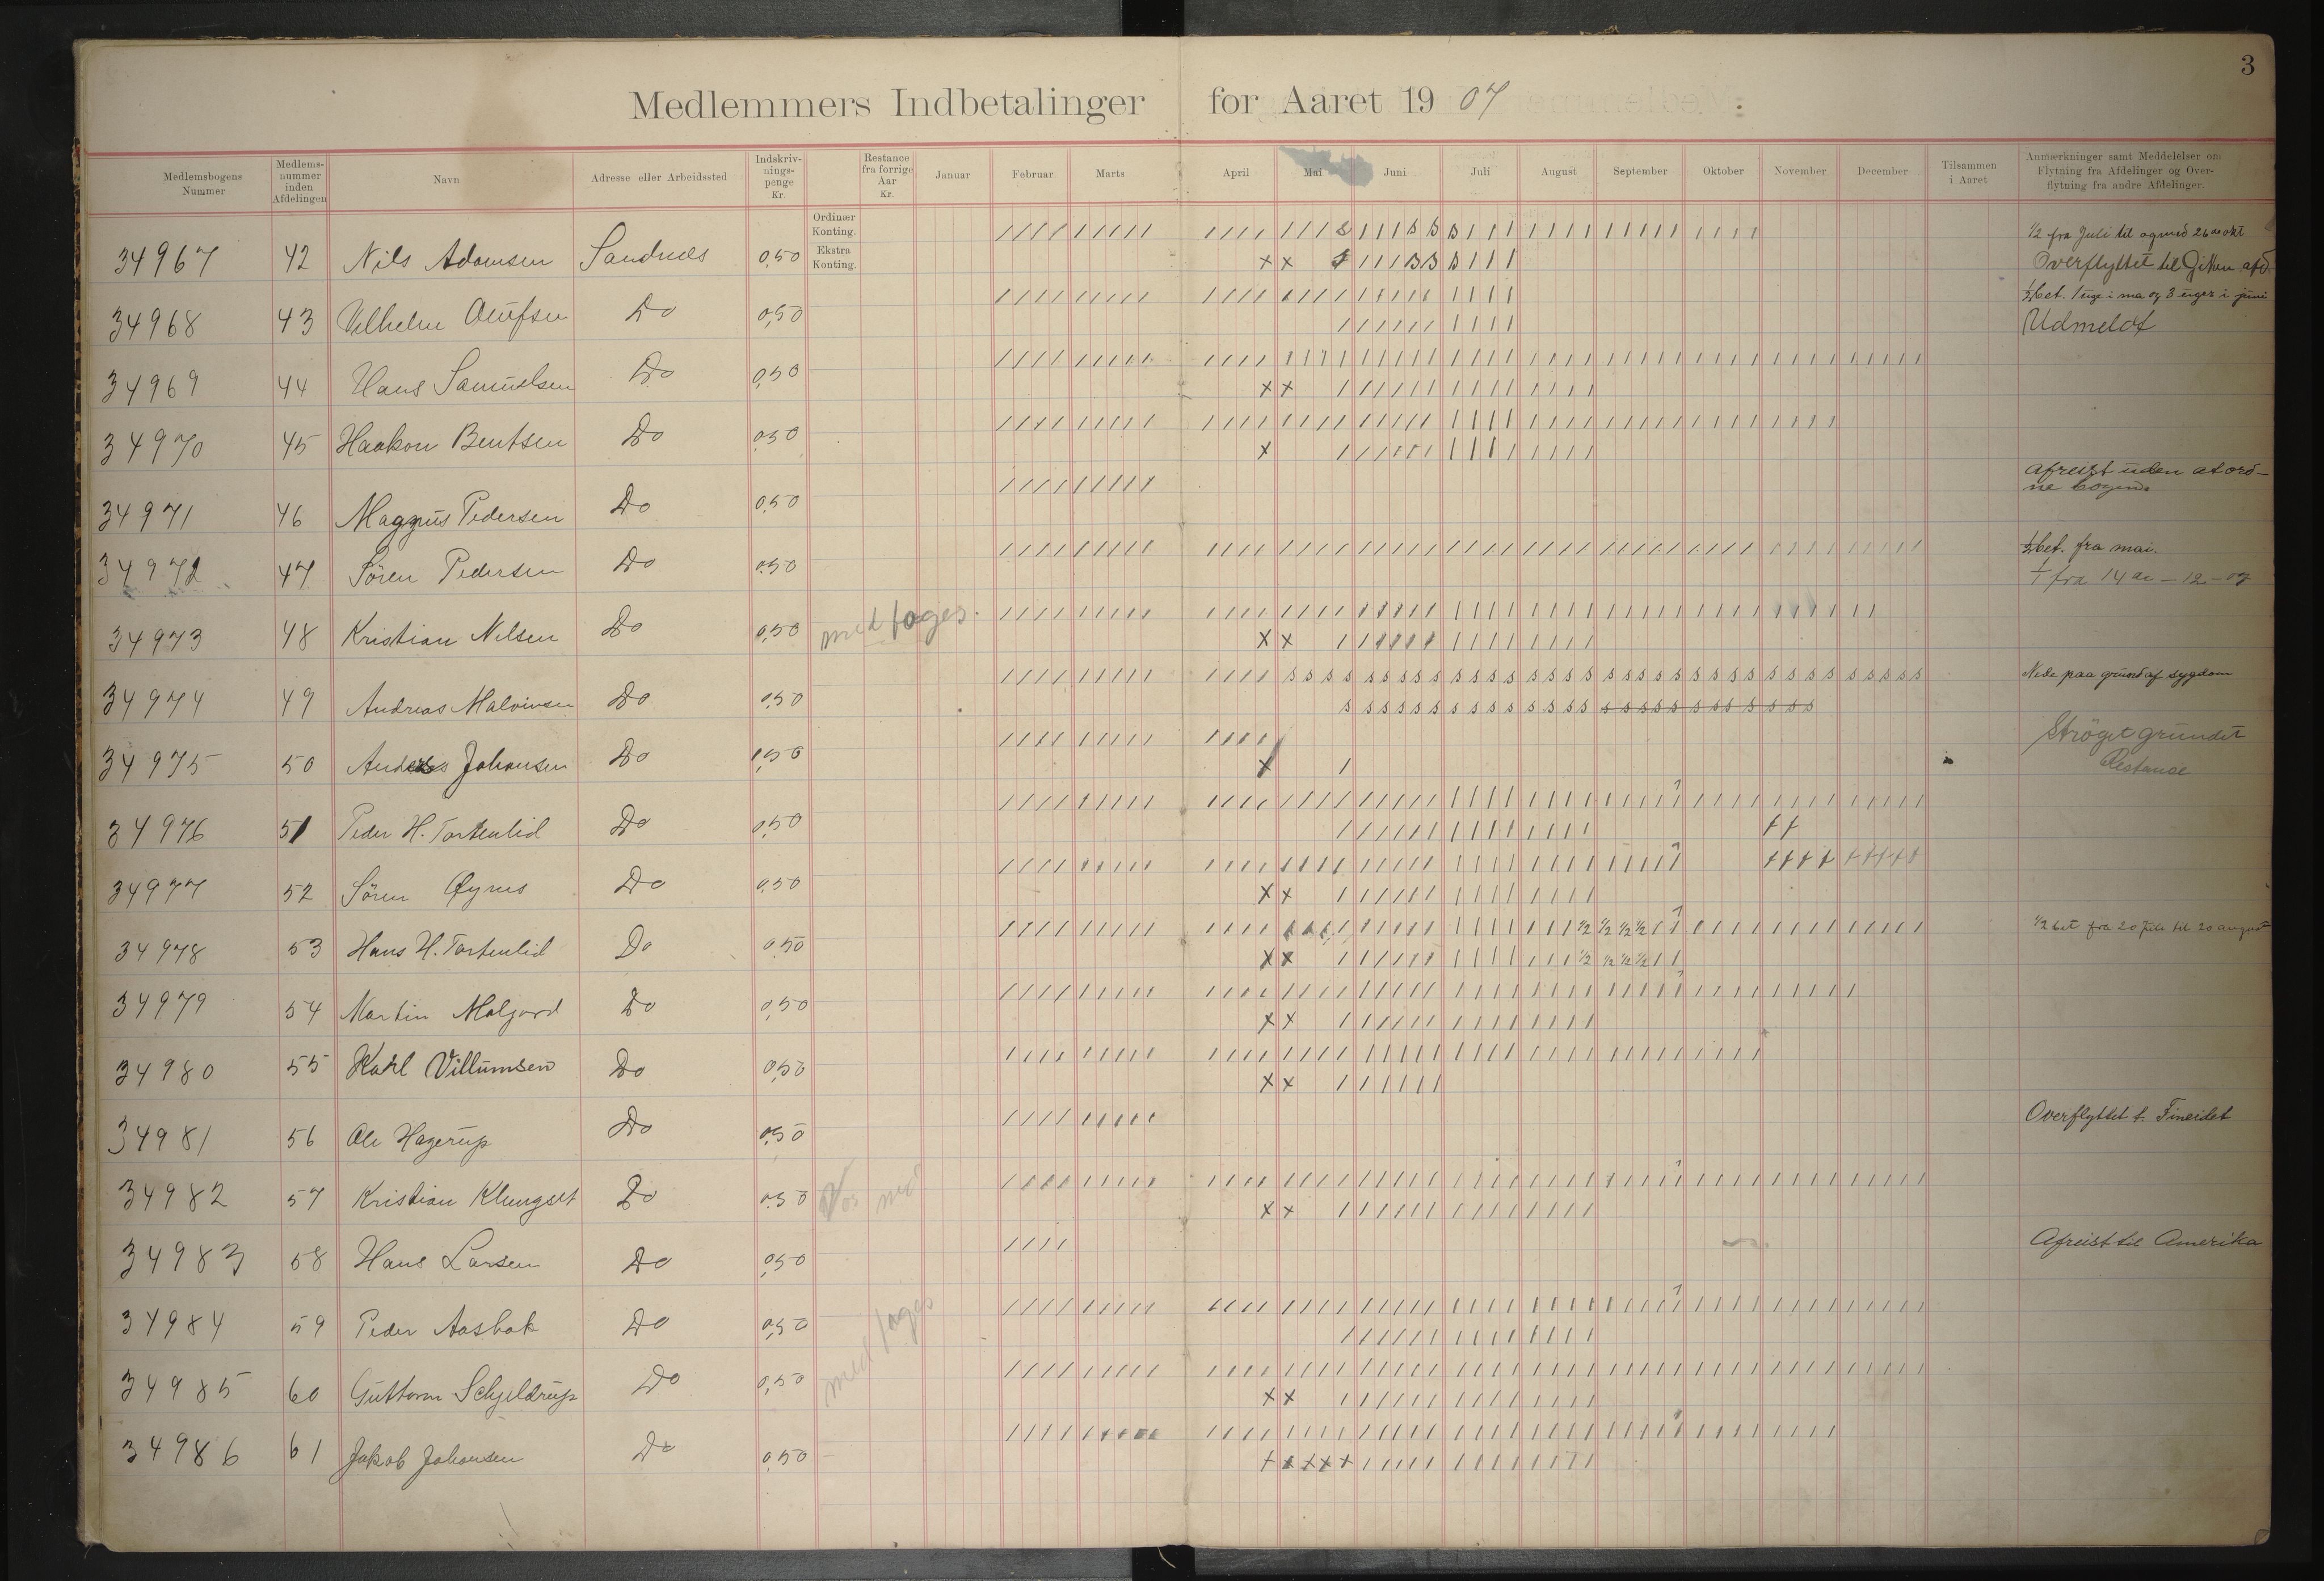 3
Medlemmers Indbetalinger for Aaret 1907
Medlemsbogens Nummer
Medlems-nummer inden Afdelingen
Navn
Adresse eller Arbeidssted
Indskriv-nings-penge Kr.
Restance fra forrige Aar Kr.
Januar
Februar
Marts
April
Mai
Juni
Juli
August
September
Oktober
November
December
Tilsammen i Aaret
Anmærkninger samt Meddelelser om Flytning fra Afdelinger og Over-flytning fra andre Afdelinger.
Ordinær Konting.
Ekstra Konting.
34967 42 Nils Adamsen Sandnes 0,50 1/2 fra Juli til ogmed 26 de okt
Overflyttet til afd.
34968 43 Vilhelm Olufsen Do 0,50 1/2 bet. 1 uge i ma og 3 uger i juni
Udmeldt
34969 44 Hans Samuelsen Do 0,50
34970 45 Haakon Bentsen Do 0,50
34971 46 Magnus Pedersen Do 0,50 afreist uden at ord-
ne bogen.
34972 47 Sören Pedersen Do 0,50 1/2 bet. fra mai.
1/1 fra 14 de - 12 - 07
34973 48 Kristian Nilsen Do 0,50 med foges.
34974 49 Andreas Do 0,50 Nede paa grund af sygdom
34975 50 Anders Johansen Do 0,50 Ströget grundet
Restance
34976 51 Peder H. Tortenlid Do 0,50
34977 52 Sören Øynes Do 0,50
34978 53 Hans H. Tortenlid Do 0,50 1/2 bet fra 20 juli til 20 august
34979 54 Martin Do 0,50
34980 55 Karl Villumsen Do 0,50
34981 56 Ole Hagerup Do 0,50 Overflyttet t. Fineidet
34982 57 Kristian Klungset Do 0,50 med
34983 58 Hans Larsen Do 0,50 Afreist til Amerika
34984 59 Peder Aasbak Do 0,50
34985 60 Guttorm Schjeldrup Do 0,50 med foges
34986 61 Jakob Johansen Do 0,50